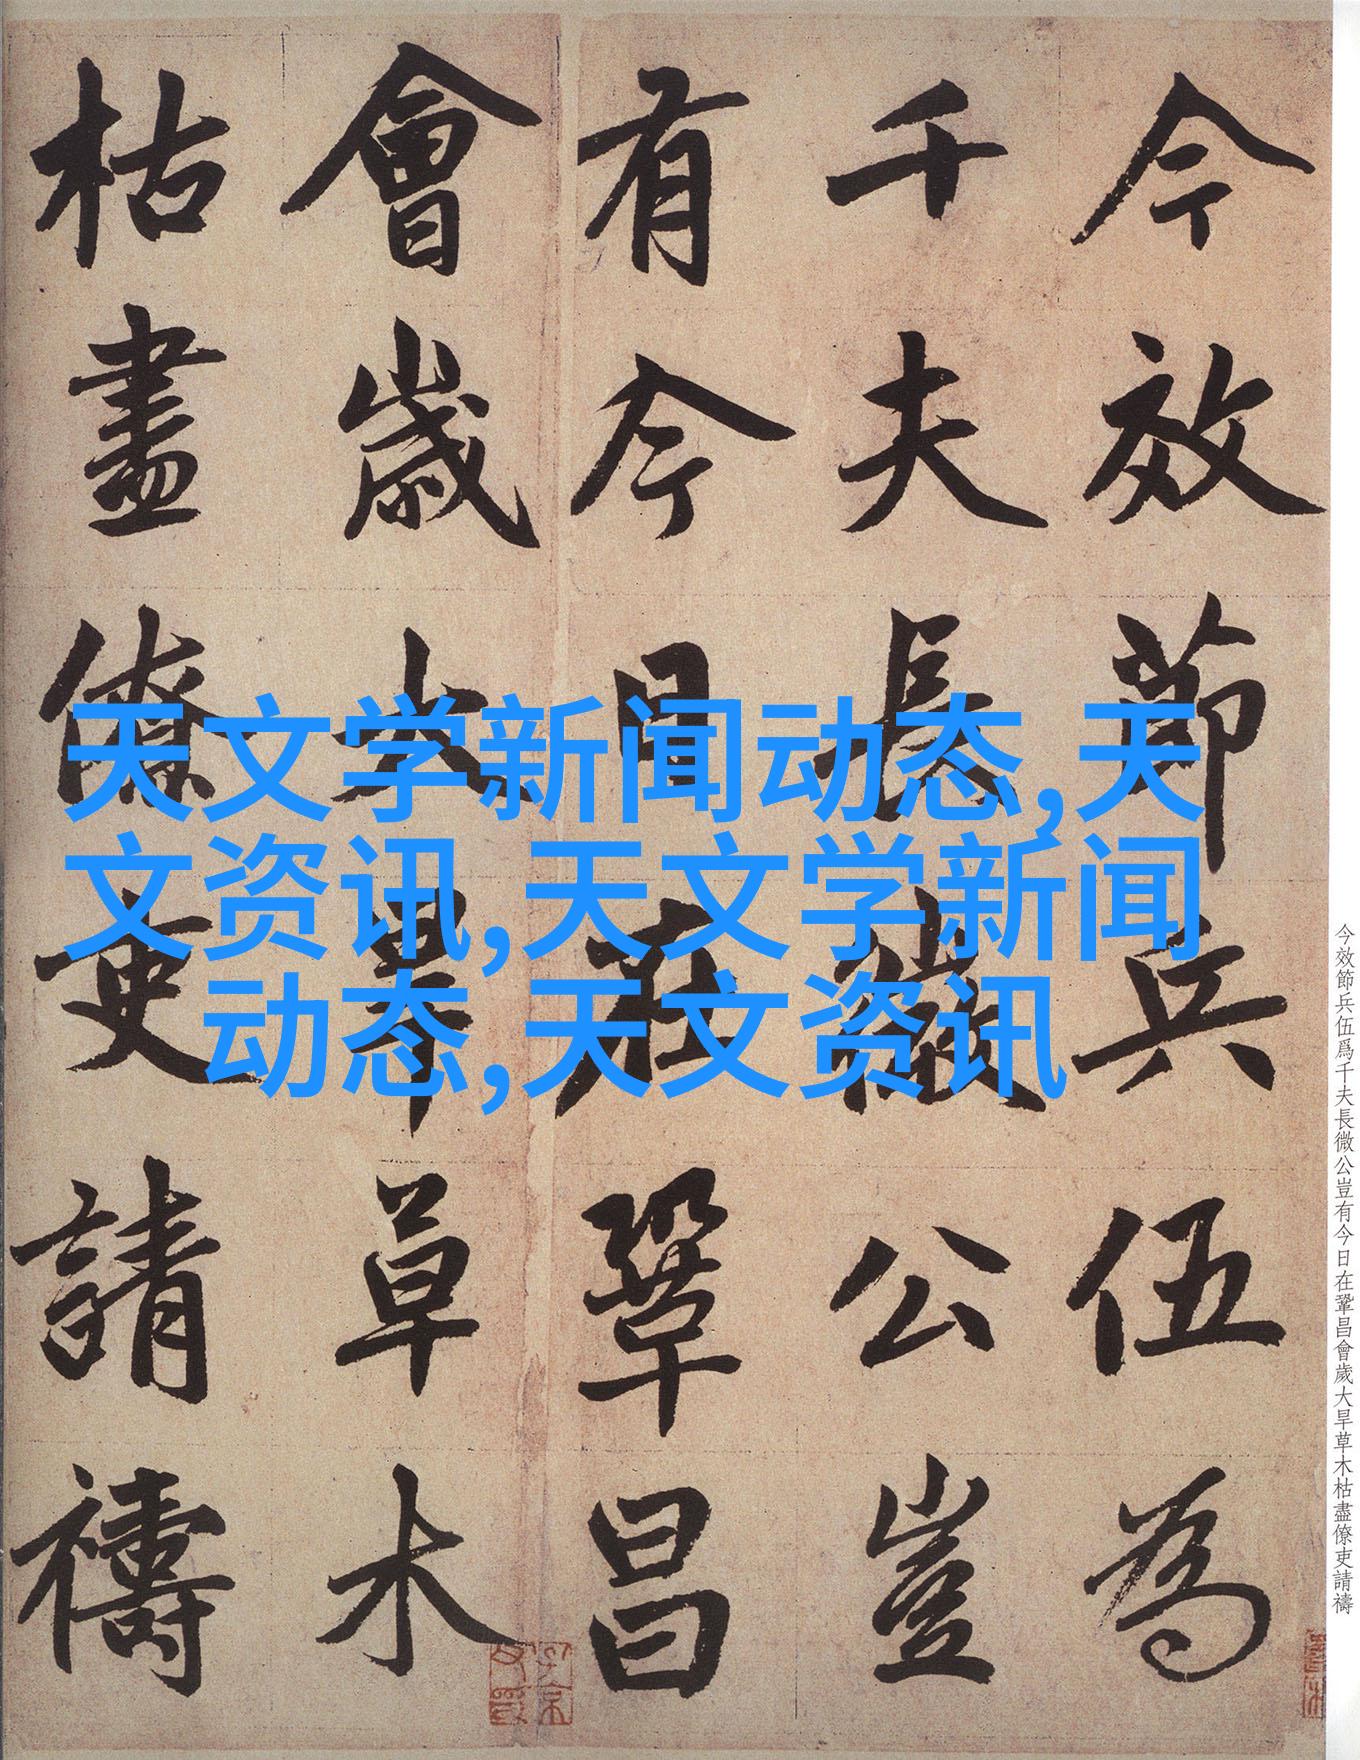 今效節兵伍為
千夫長微公豈
有今日在鞏昌
會歲大旱草木
枯盡僚吏請禱
天文学新闻动态,天
文资讯,天文学新闻
动态,天文资讯
今效節兵伍爲千夫長微公豈有今日在鞏昌會歲大旱草木枯盡僚吏請禱